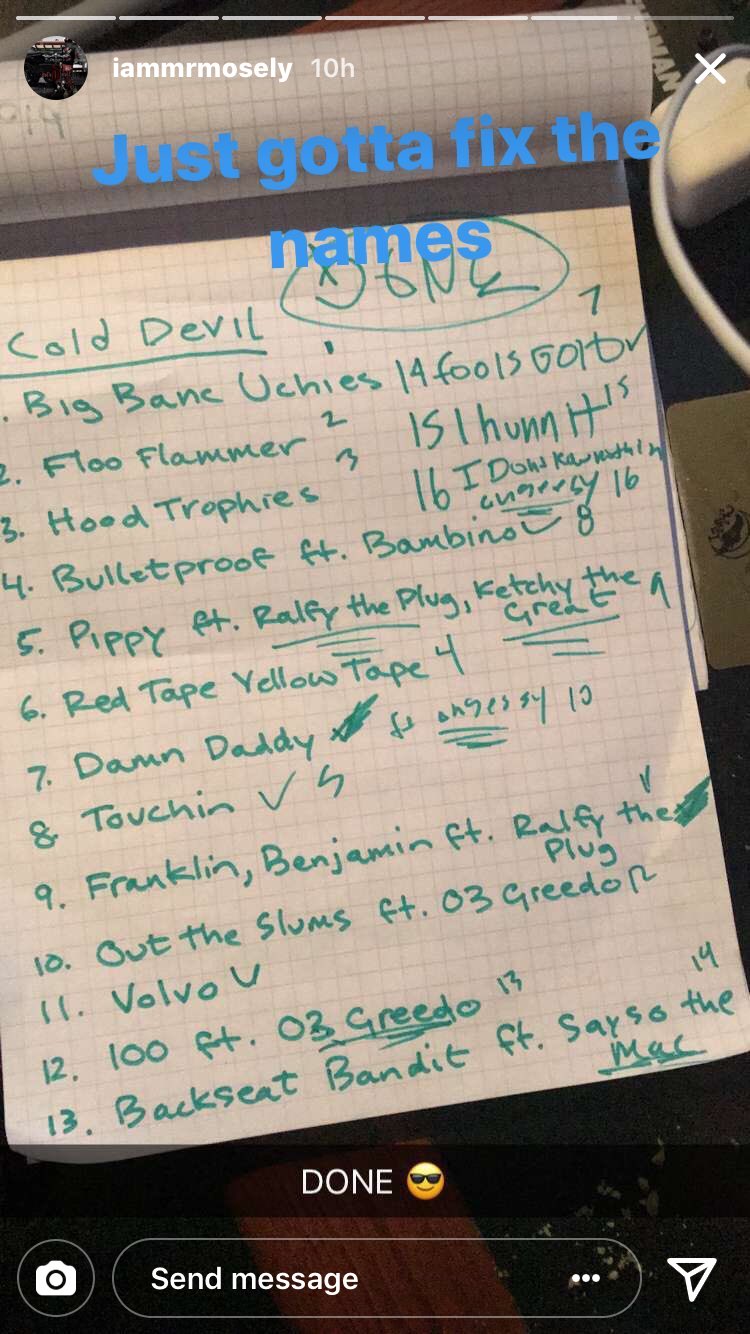 iammrmosely 10h
Just gotta fix the
names
DONE
Cold Devil
1
7
. Big Banc Uchies 14 fools Gold
2. Floo Flammer 2 15 I hunn It 15
3. Hood Trophies 3 16 I Dont 16
4. Bulletproof ft. Bambino 8
5. Pippy ft. Ralfy the Plug, Ketchy the 9
Great
6. Red Tape Yellow Tape 4
7. Damn Daddy ft ohgeesy 10
8 Touchin 5
9. Franklin, Benjamin ft. Ralfy the
Plug
10. Out the Slums ft. 03 Greedo 12
11. Volvo
12. 100 ft. 03 Greedo 13
14
13. Backseat Bandit ft. Sayso the
Mac
DONE 😎
Send message